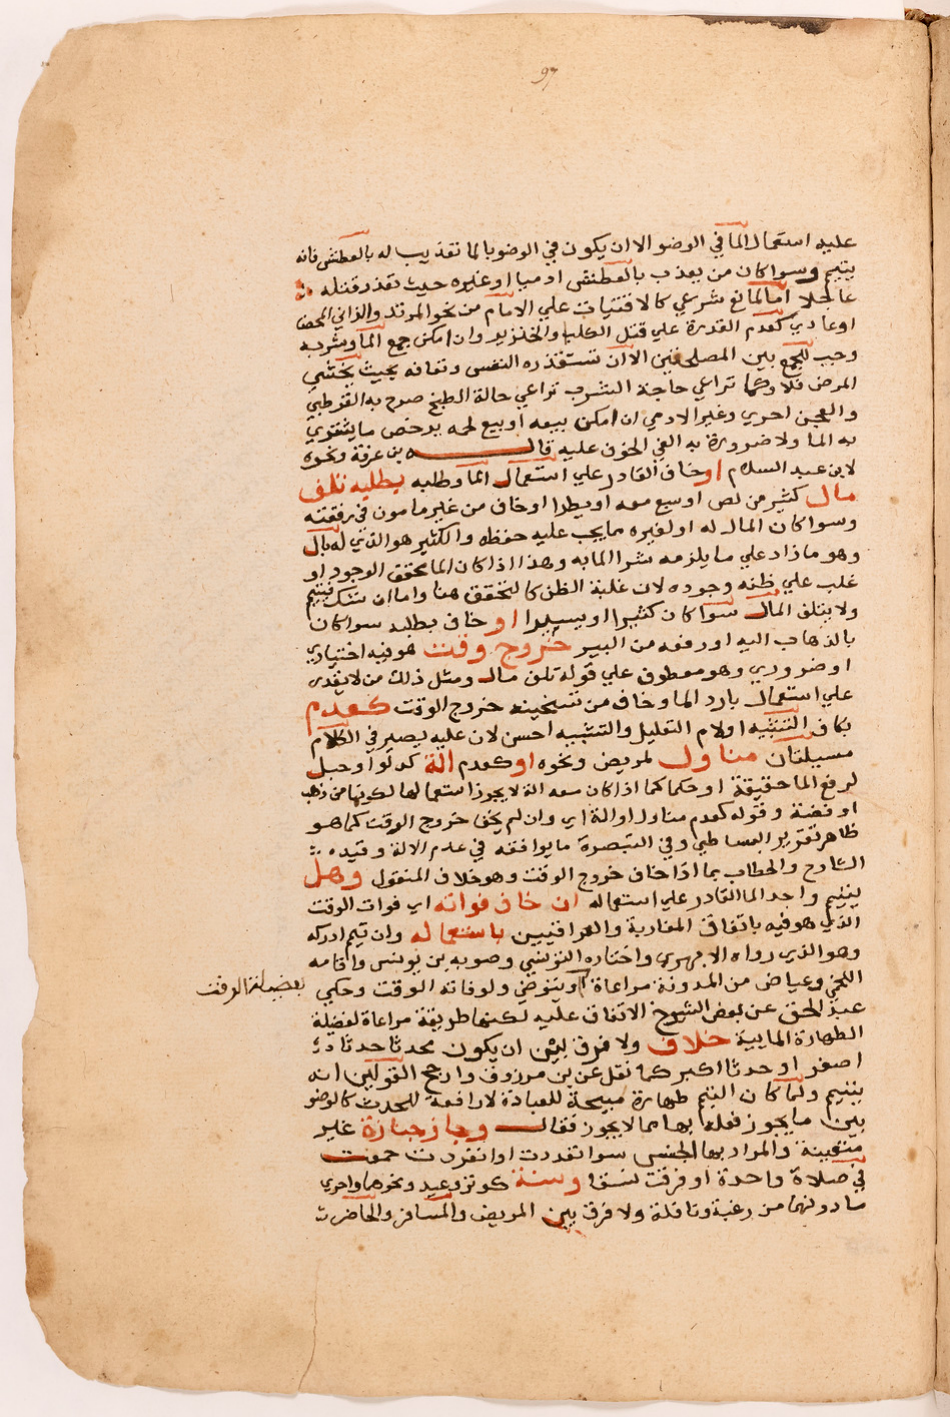 97
عليه استعمال الما في الوضو الا ان يكون في الوضو بالما تعذيب له بالعطش فانه
يتيم وسوا كان من يعذب بالعطش ادميا او غيره حيث تعذر قتله
عاجلا اما لمانع شرعي كالافتيات علي الامام من نحو المرتد والزاني المحصن
او عادي كعدم القدرة علي قتل الكلب والخنزير وان امكن جمع الما وشربه
وجب للجمع بين المصلحتين الا ان تستقذره النفس وتعافه بحيث يخشي
المرض فلا وكما تراعي حاجة الشرب تراعي حالة الطبخ صرح به القرطبي
والعجن احري وغير الادمي ان امكن بيعه او بيع لحمه يرخص ما يشتري
به الما ولا ضرورة به الغي الخوف عليه قاله بن عرفة ونحوه
لابن عبد السلام او خاف القادر علي استعمال الما وطلبه بطلبه تلف
مال كثير من لص او سبع معه او يطرا او خاف من غير مامون في رفقته
وسوا كان المال له او لغيره مما يجب عليه حفظه والكثير هو الذي له بال
وهو ما زاد علي ما يلزمه شرا الما به وهذا اذا كان الما محقق الوجود او
غلب علي ظنه وجوده لان غلبة الظن كالتحقق هنا واما ان شك فيتيم
ولا يتلف المال سوا كان كثيرا او يسيرا او خاف بطلبه سوا كان
بالذهاب اليه او رفعه من البير خروج وقت هو فيه اختياري
او ضروري وهو معطوف علي قوله تلف مال ومثل ذلك من لا يقدر
علي استعمال بارد الما وخاف من تسخينه خروج الوقت كعدم
بكاف التشبيه او لام التعليل والتشبيه احسن لان عليه يصير في الكلام
مسيلتان مناول لمريض ونحوه او كعدم الة كدلو او حبل
لرفع الما حقيقة او حكما كما اذا كان معه الة لا يجوز استعمالها لكونها من ذهب
او فضة وقوله كعدم مناول او الة اي وان لم يخف خروج الوقت كما هو
ظاهر تقرير البساطي وفي التبصرة ما يوافقه في عدم الالة وقيده
الشارح والحطاب بما اذا خاف خروج الوقت وهو خلاف المنقول وهل
يتيم واجد الما القادر علي استعماله ان خاف فواته اي فوات الوقت
الذي هو فيه باتفاق المغاربة والعراقيين باستعماله وان تيم ادركه
وهو الذي رواه الابهري واختاره التونسي وصوبه بن يونس واقامه
اللخمي وعياض من المدونة مراعاة او يتوضي ولو فاته الوقت وحكي
لفضيلة الوقت
عبد الحق عن بعض الشيوخ الاتفاق عليه لكنها طريقة مراعاة لفضيلة
الطهارة المايية خلاف ولا فرق بين ان يكون محدثا حدثا
اصغر او حدثا اكبر كما نقل عن بن مرزوق وارجح القولين انه
يتيم ولما كان التيم طهارة مبيحة للعبادة لا رافعة للحدث كالوضو
بين ما يجوز فعله بها مما لا يجوز فقال وجاز جنازة غير
متعينة والمراد بها الجنس سوا تعددت او انفردت جمعت
في صلاة واحدة او فرقت نسقا وسنة كوتر وعيد ونحوهما واحري
ما دونهما من رغيبة ونافلة ولا فرق بين المريض والمسافر والحاضر